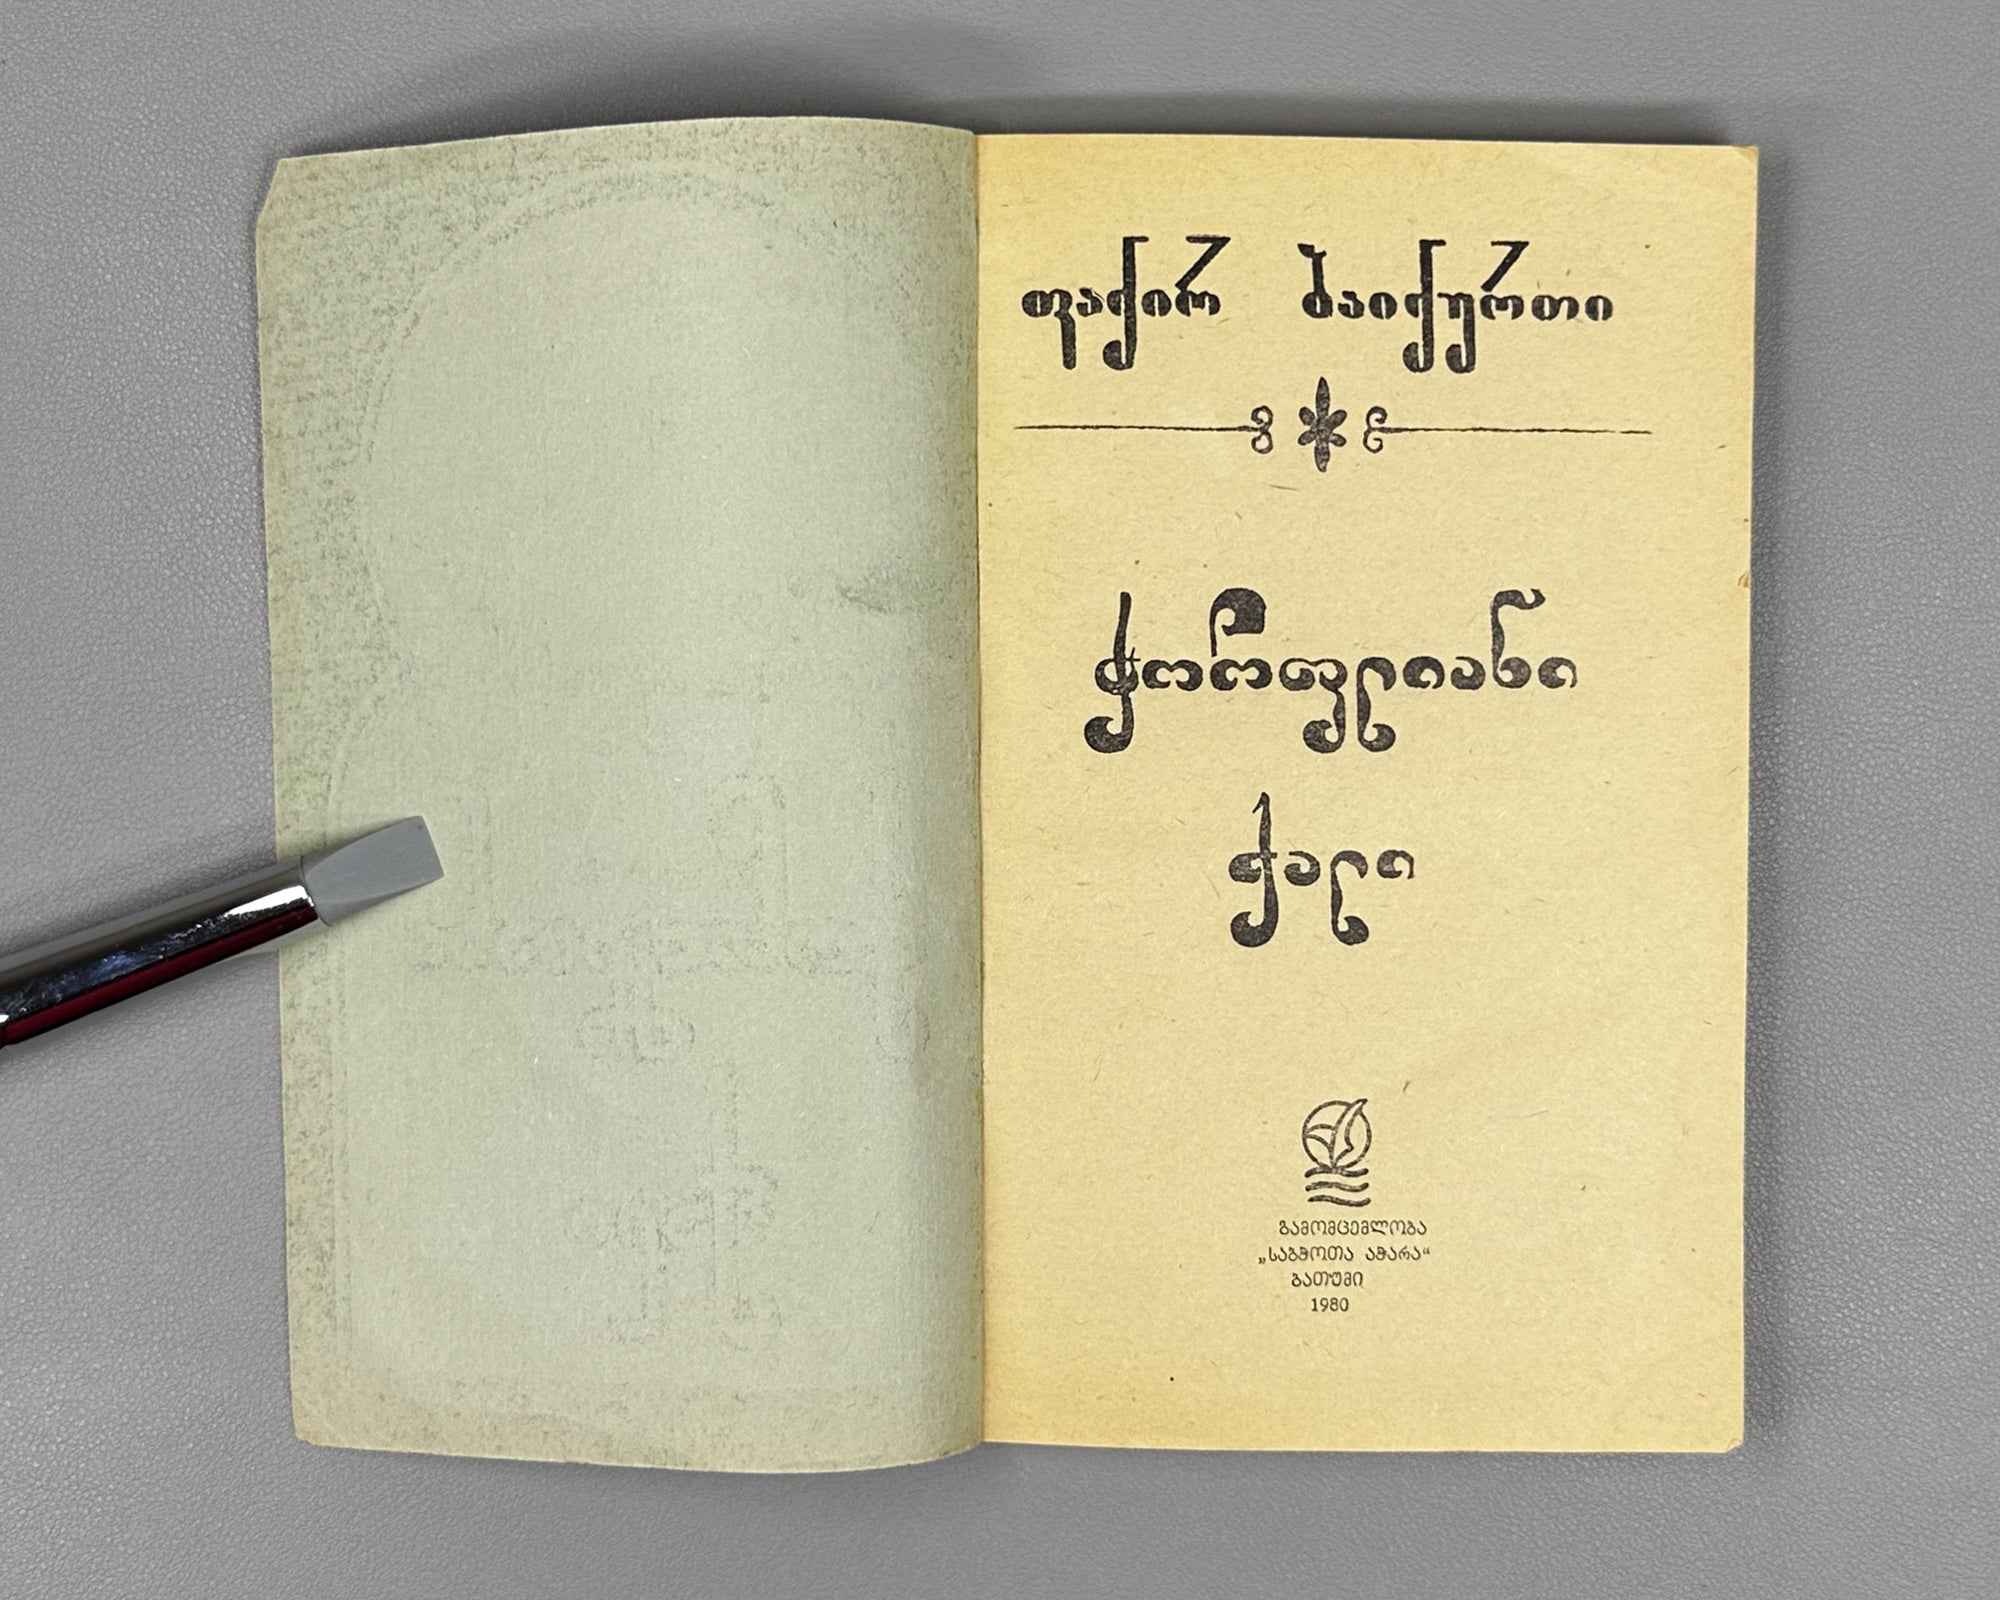 ფაქირ ბაიქურთი
ჭორფლიანი
ქალი
გამომცემლობა
„საბჭოთა აჭარა“
ბათუმი
1980